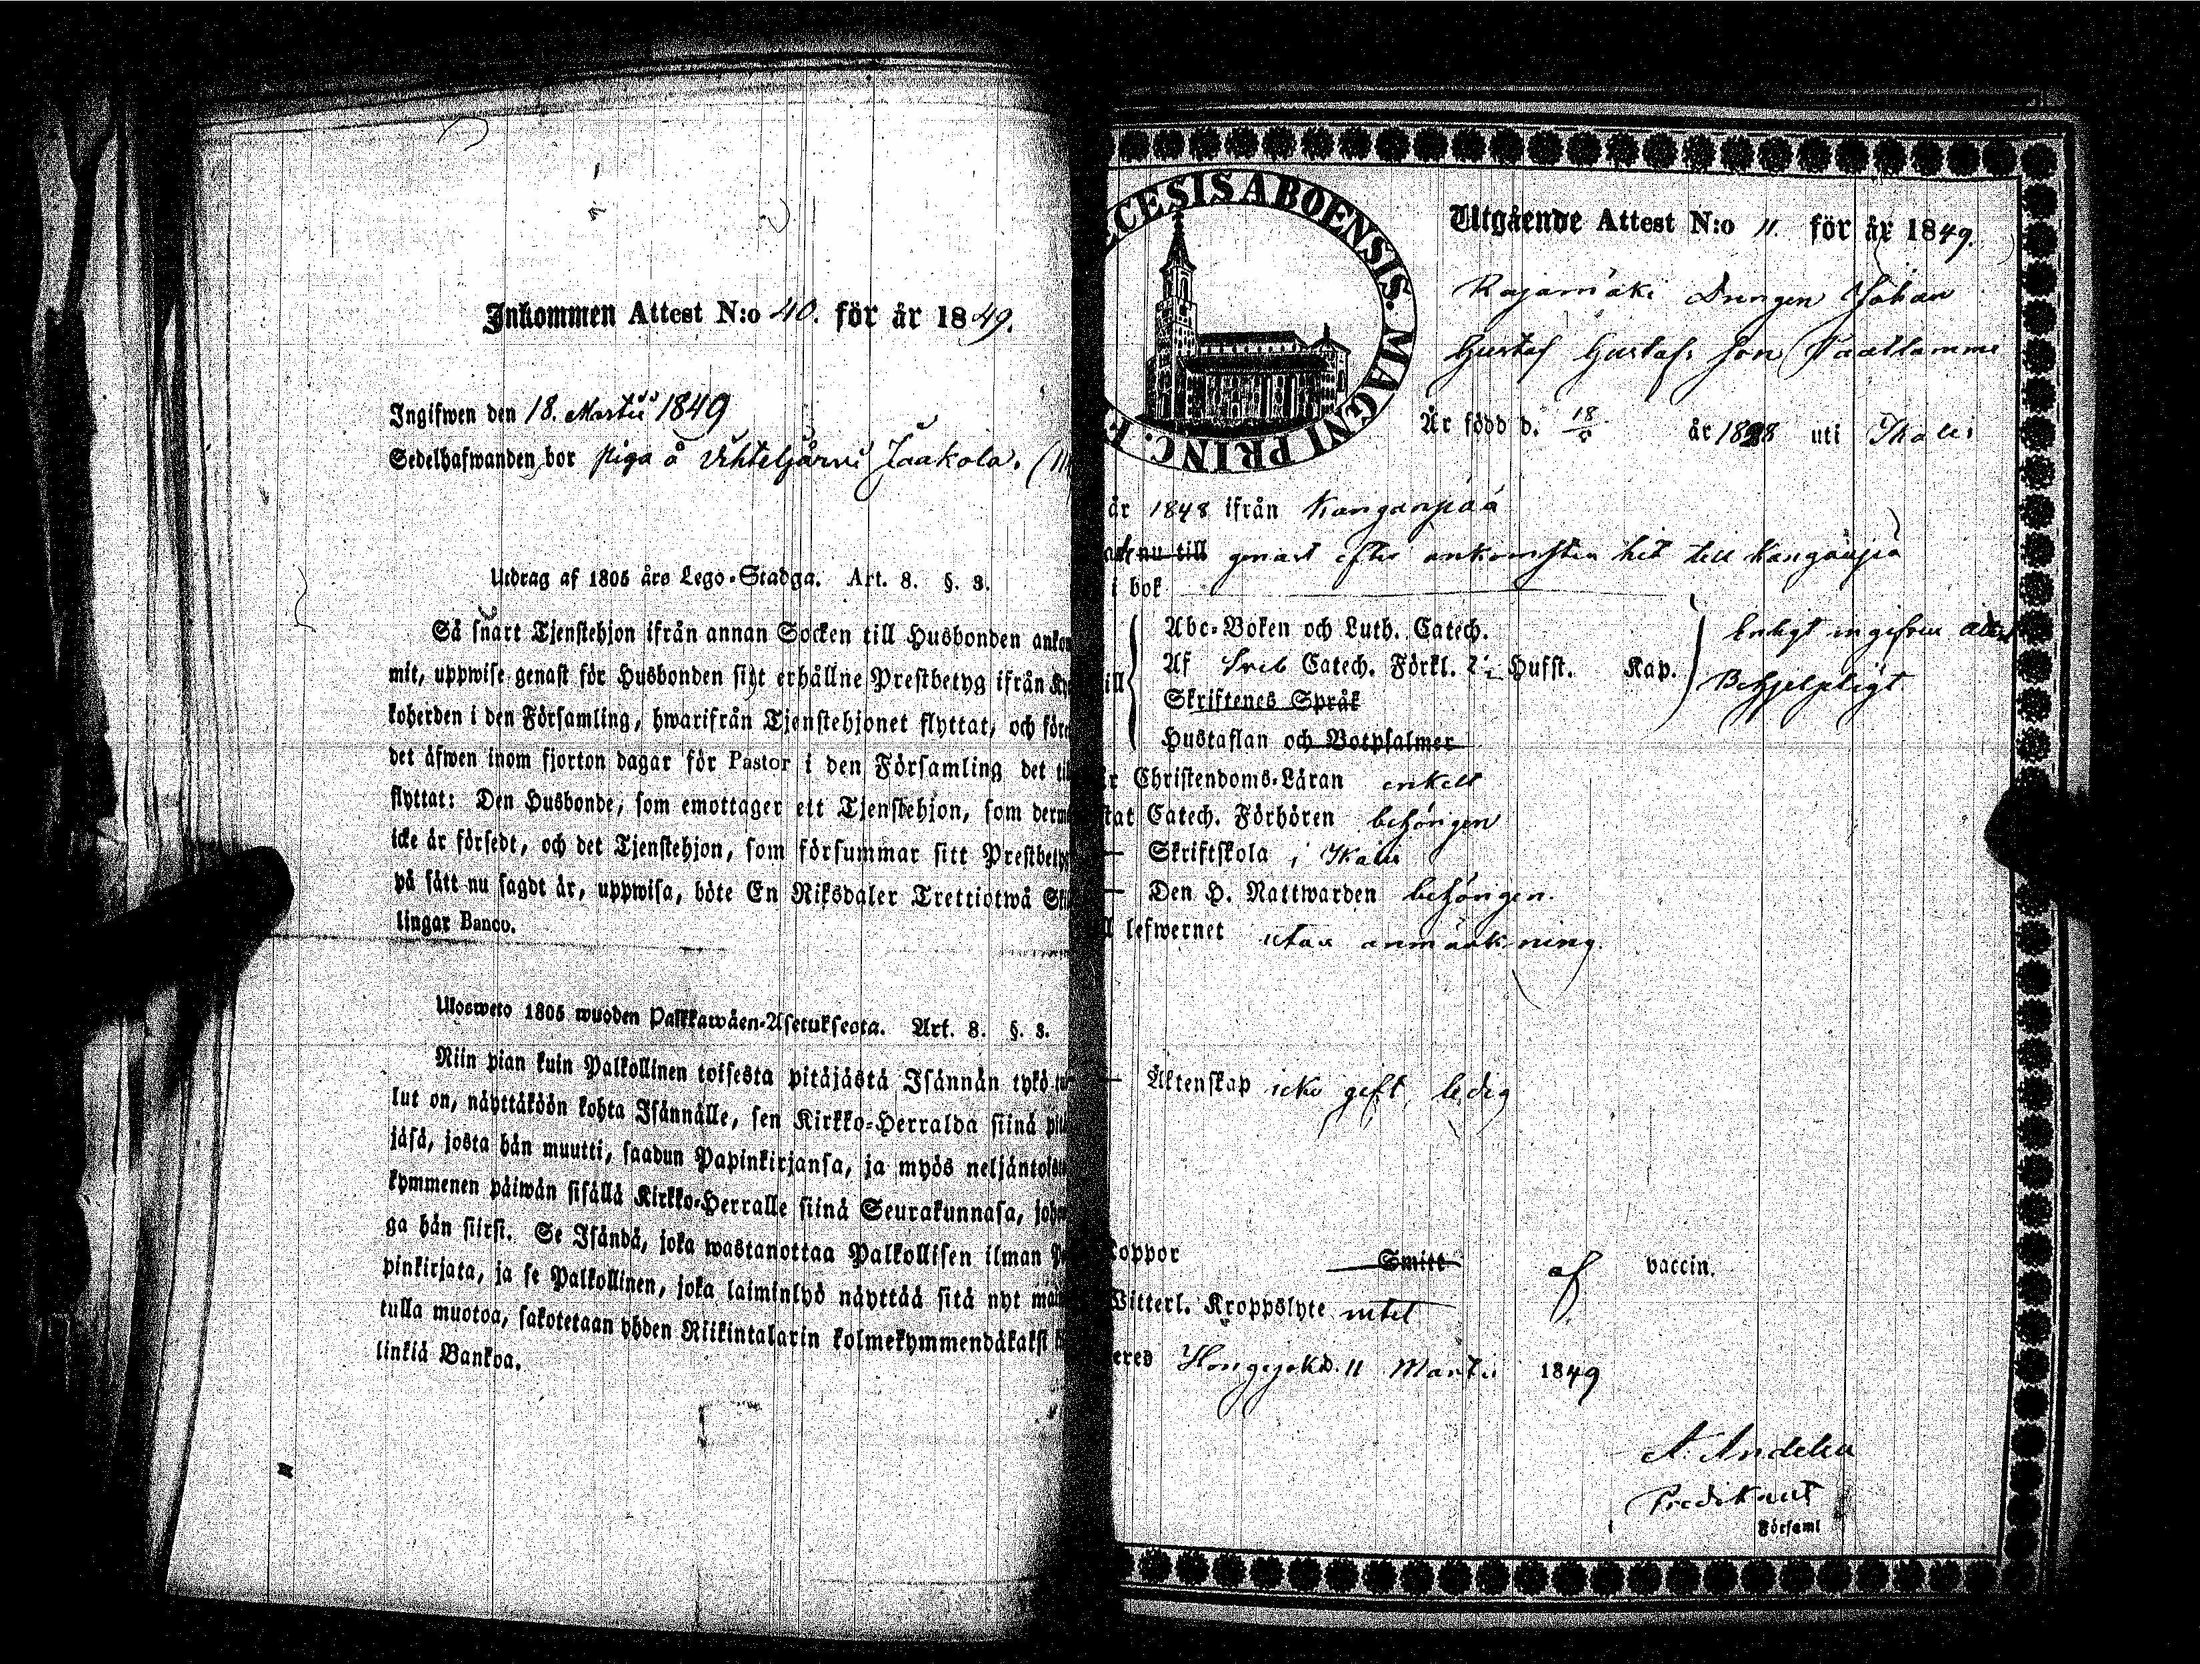 Inkommen Attest N:o 40. för år 1849.
Ingifwen den 18. Martii 1849
Sedelhafwanden bor piga å Vihteljärvi Jaakola.
Utdrag af 1805 års Lego-Stadga. Art. 8. §. 3.
Så snart Tjenstehjon ifrån annan Socken till Husbonden
mit, uppwise genast för Husbonden sitt erhållne Prestbetyg ifrån
koherden i den Församling, hwarifrån Tjenstehjonet flyttat, och
det äfwen inom fjorton dagar för Pastor i den Församling det
flyttat: Den Husbonde, som emottager ett Tjenstehjon, som
icke är försedt, och det Tjenstehjon, som försummar sitt
på sätt nu sagdt är, uppwisa, böte En Riksdaler Trettiotwå
lingar Banco.
Ulosweto 1805 wuoden Palkkawäen-Asetuksesta. Art. 8. §. 3.
Niin pian kuin Palkollinen toisesta pitäjästä Isännän tykö
lut on, näyttäköön kohta Isännälle, sen Kirkko-Herralda siinä
jäsä, josta hän muutti, saadun Papinkirjansa, ja myös
kymmenen päiwän sisällä Kirkko-Herralle siinä Seurakunnasa,
ga hän siirsi. Se Isändä, joka wastanottaa Palkollisen ilman
pinkirjata, ja se Palkollinen, joka laiminlyö näyttää sitä nyt
tulla muotoa, sakotetaan yhden Riikintalarin kolmekymmendäkaksi
linkiä Bankoa.
CESIS ABOENSIS. MAGNI PRINC. F
Utgående Attest N:o 11. för år 1849.
Rajamäki Drengen Johan
Gustaf Gustafs Son
Är född d. 18 år 1828 uti Ikalis
år 1848 ifrån Kanganpää
nu till genast efter ankomsten hit till
i bok
Abc-Boken och Luth. Catech.
Enligt ingifven attest
Af Sveb Catech. Förkl. Hufst. Kap.
Behjelpligt
Skriftenes Språk
Hustaflan och Botpsalmer
Christendoms-Läran enkelt
Catech. Förhören behörigen
Skriftskola i Ikalis
Den H. Nattwarden behörigen.
lefwernet utan anmärkning.
Äktenskap icke gift, ledig
Koppor Smitt af vaccin.
Witterl. Kroppslyte intet
Hongojoki d. 11 Martii 1849
Predikant
i Församl